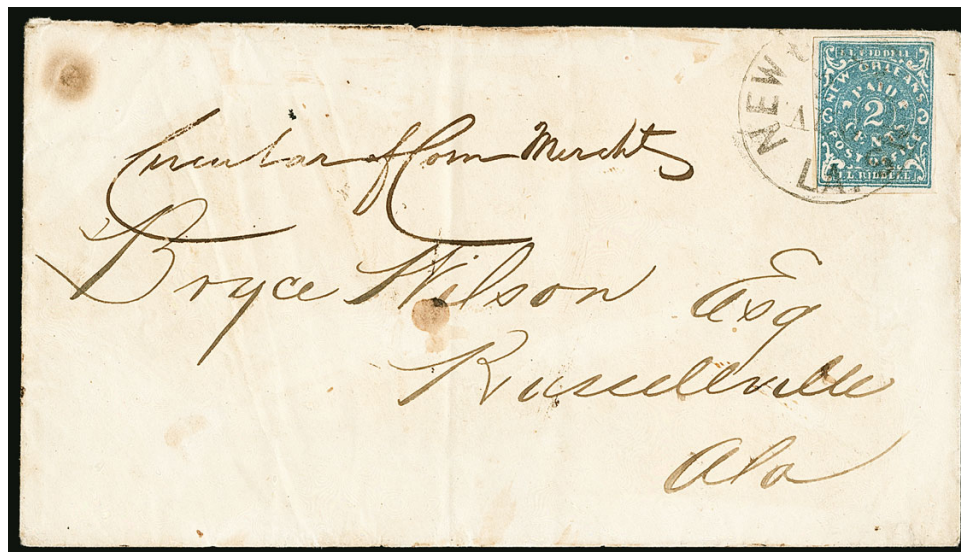 J. L. RIDDELL
NEW ORLEANS
PAID
2
POST OFFICE
J. L. RIDDELL
NEW
LA.
Circular of Com Merchts
Bryce Wilson Esq
Russellville
Ala